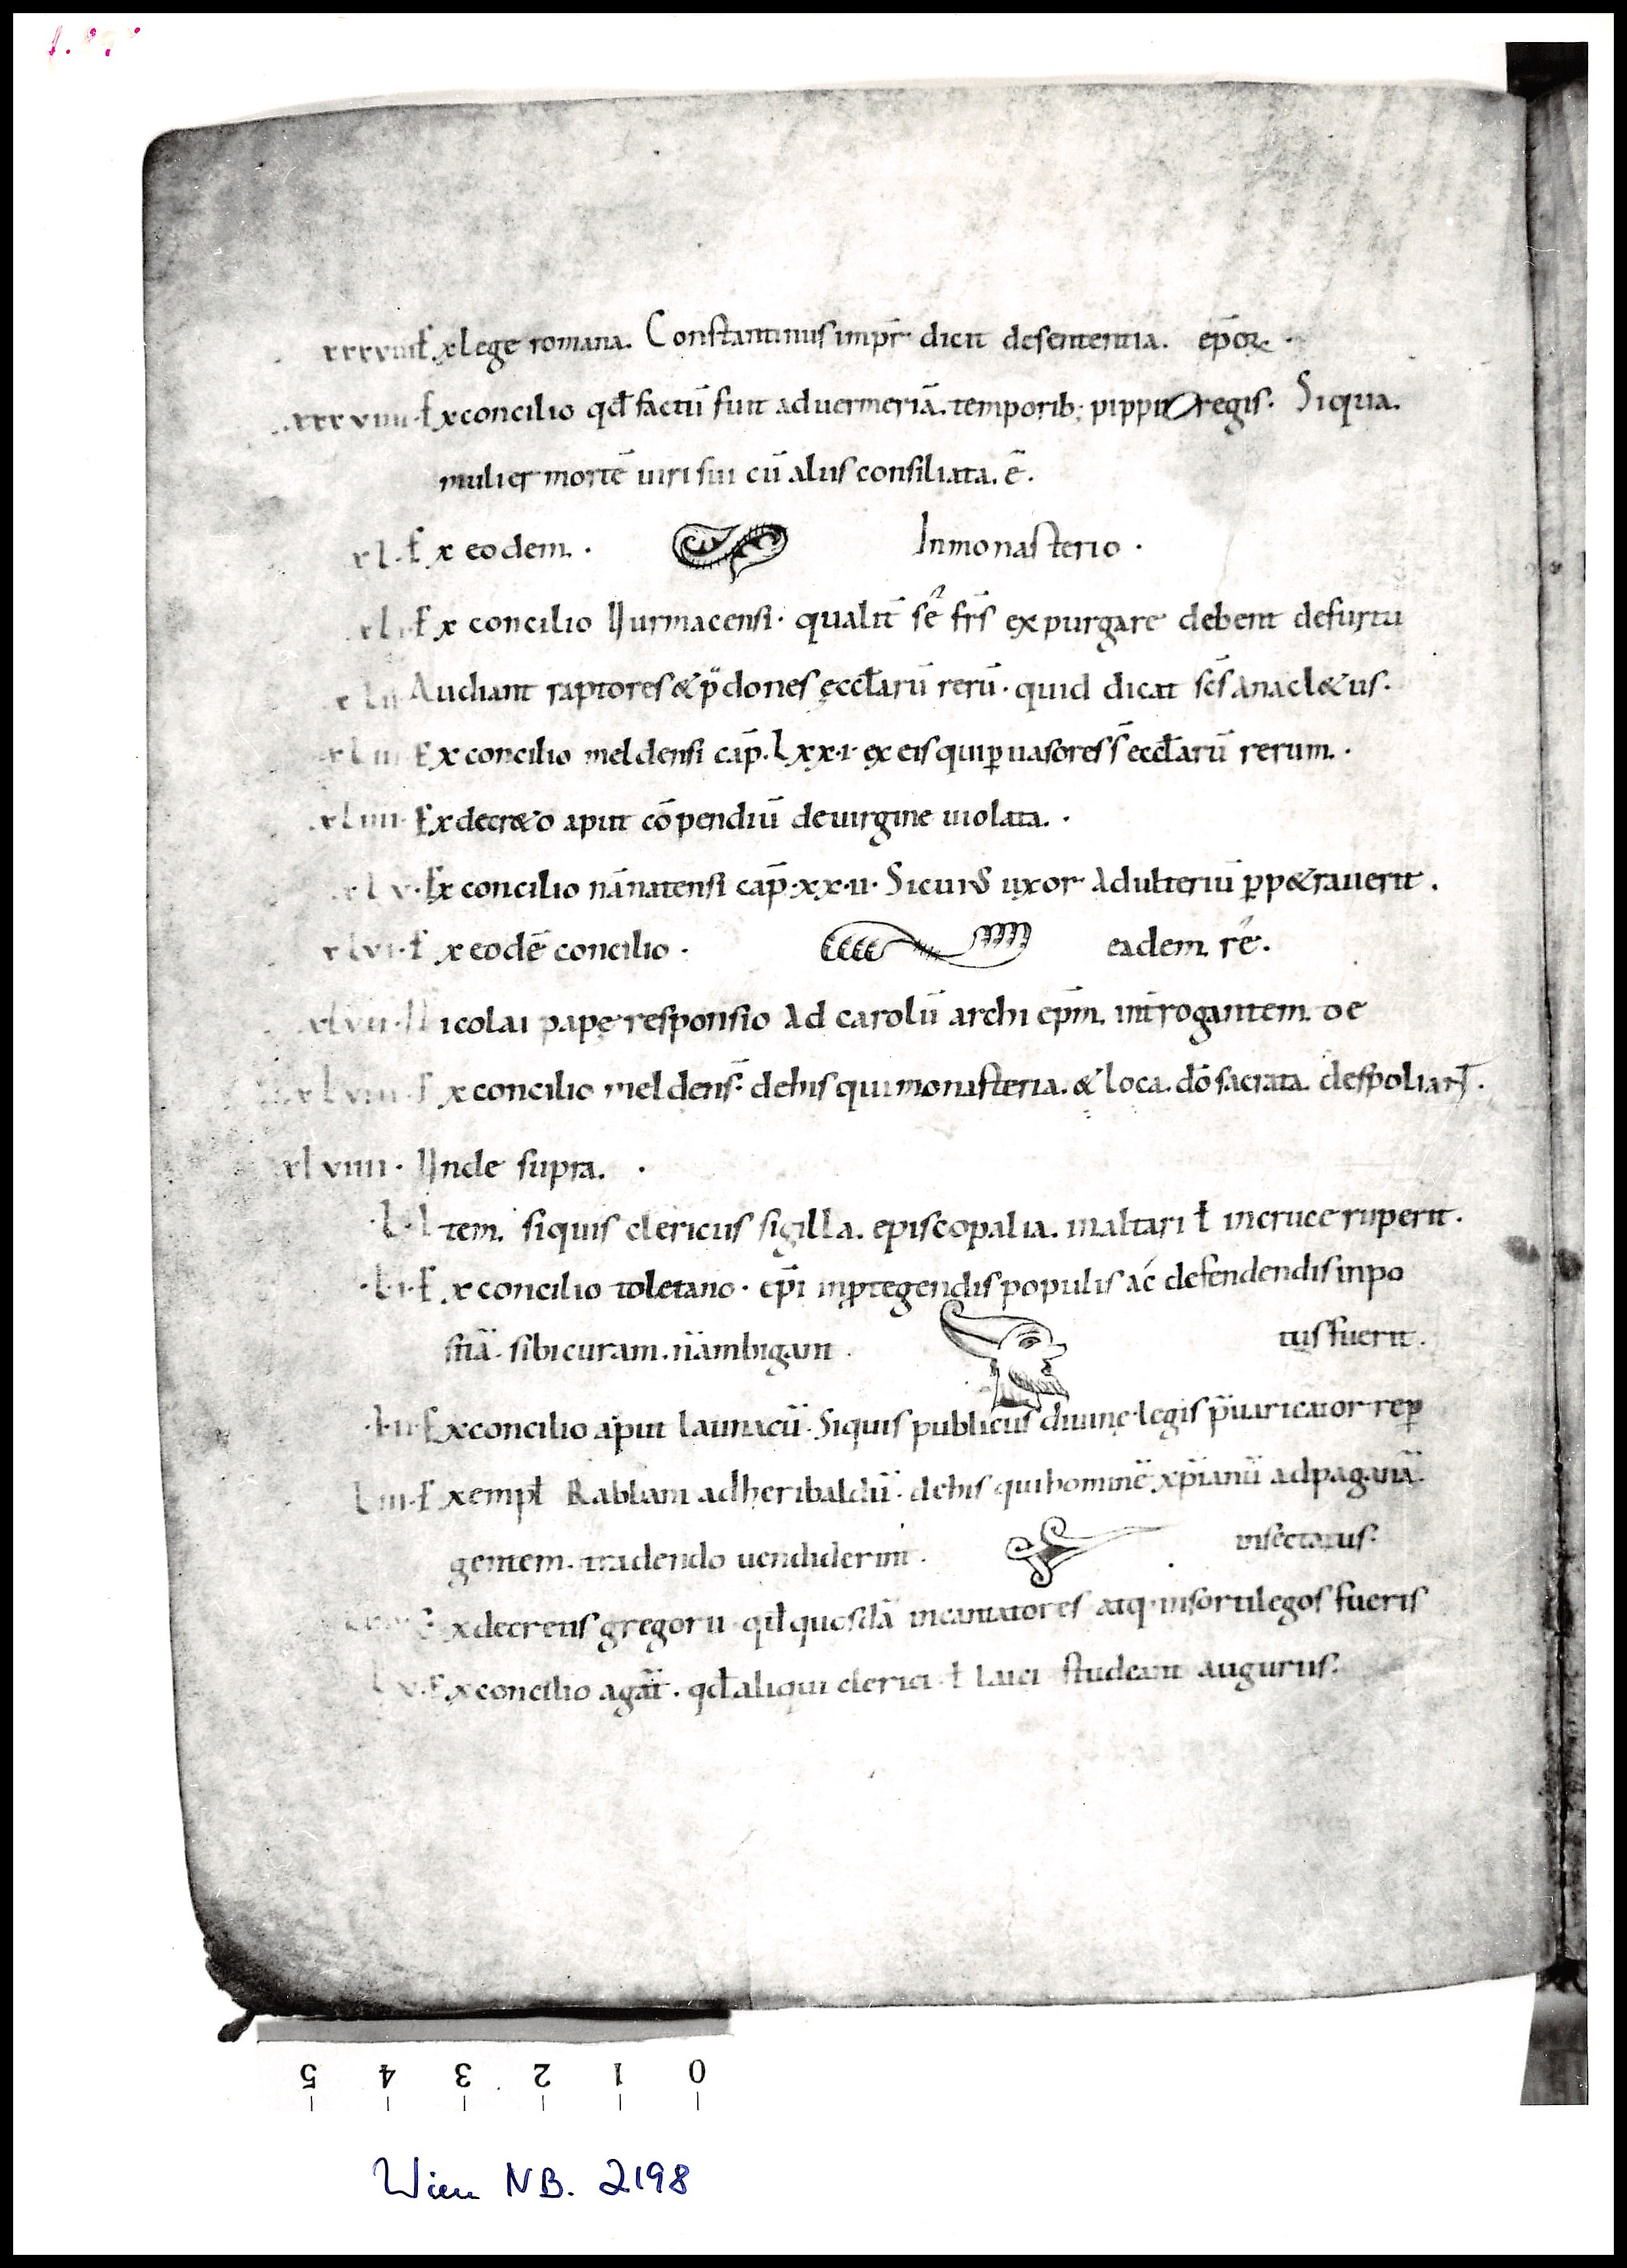 xxxviii Ex lege romana. Constantinus imp̄r dicit de sententia. ep̄oꝝ.
xxxviiii. Ex concilio qđ factū fuit ad uermeriā. temporib; pippini regis. Siqua.
mulier mortē uiri sui cū aliis consiliata. ē.
xl. Ex eodem. In monasterio.
xli. Ex concilio Uurmacensi. qualit̄ sē fr̄s expurgare debent de furtu
xlii Audiant raptores & p̄dones ęccłarū rerū. quid dicat sc̄s anacl&us.
xliii Ex concilio meldensi cap̄. Lxx.i. ex eis qui ꝑuasores s̄ eccłarū rerum.
xliiii. Ex decr&o aput cōpendiū de uirgine uiolata.
xlv. Ex concilio nānatensi cap̄. xx.ii. Si cuius uxor adulteriū ꝑp&rauerit.
xlvi. Ex eodē concilio. eadem rē.
xlvii. Nicolai papę responsio ad carolū archi ep̄m. int̄rogantem de
xlviii. Ex concilio meldens̄. de his qui monasteria. & loca. dō sacrata. despoliant̄.
xlviiii. Unde supra.
.L. Item. siquis clericus sigilla. episcopalia. in altari ł in cruce ruperit.
.L.i. Ex concilio toletano. ep̄i in ꝓtegendis populis ac defendendis inpo
sitā. sibi curam. n̄ ambigant. tus fuerit.
.L.ii. Ex concilio aput launacū. Siquis publicus diuinę legis p̄uaricator reꝑ
L.iii. Ex empł Rabbani ad heribaldū. de his qui hominē xp̄ianū ad paganā
gentem. tradendo uendiderint. insectatus.
Ex decretis gregorii. qđ quosdā incantatores atq. in sortilegos fueris
L.v. Ex concilio agat̄. qđ aliqui clerici ł laici studeant auguriis.
5 4 3 2 1 0
Wien NB. 2198